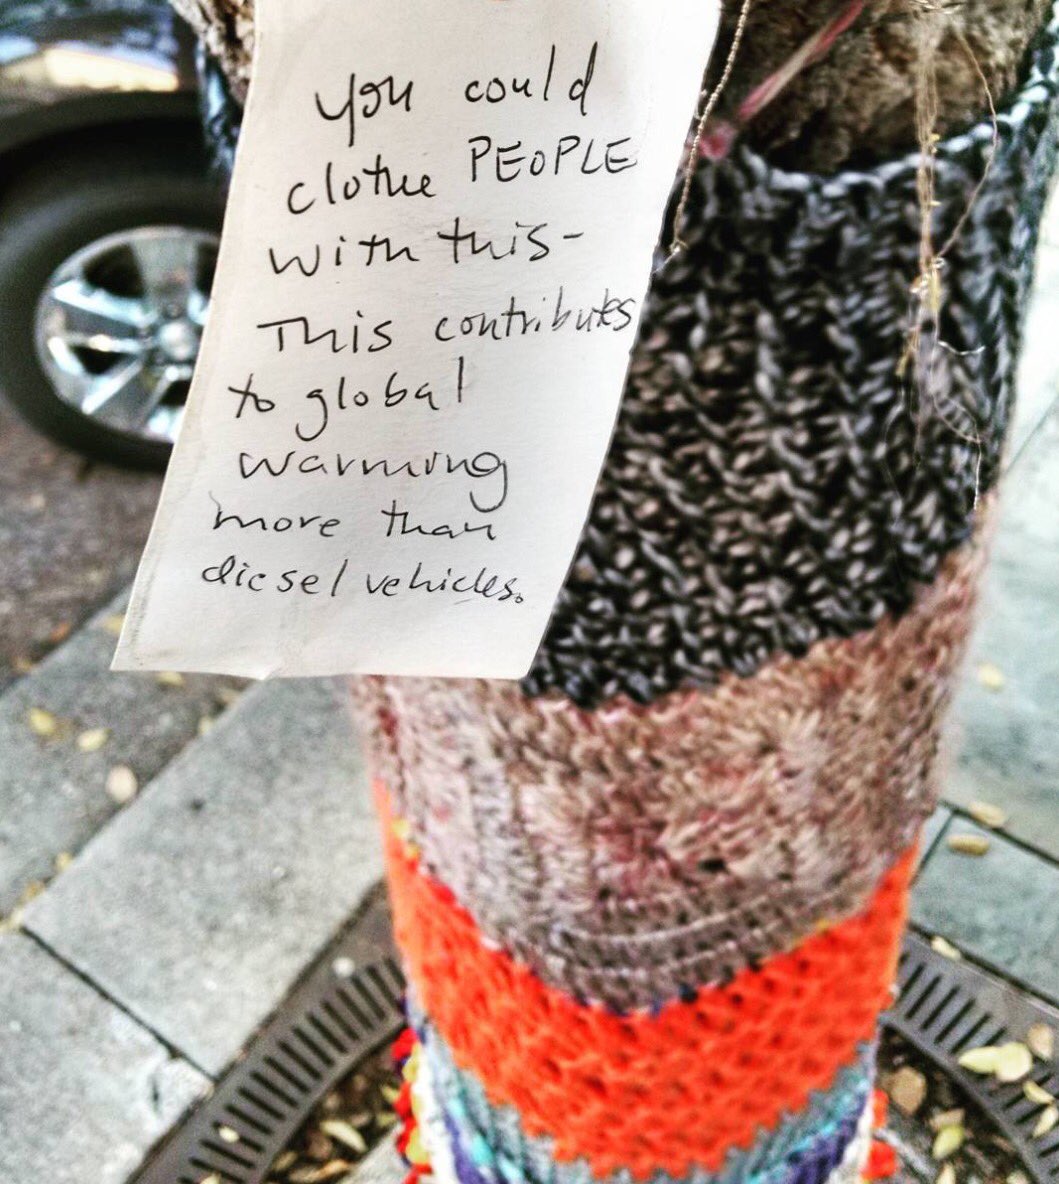 you could
clothe PEOPLE
with this-
This contributes
to global
warming
more than
diesel vehicles.